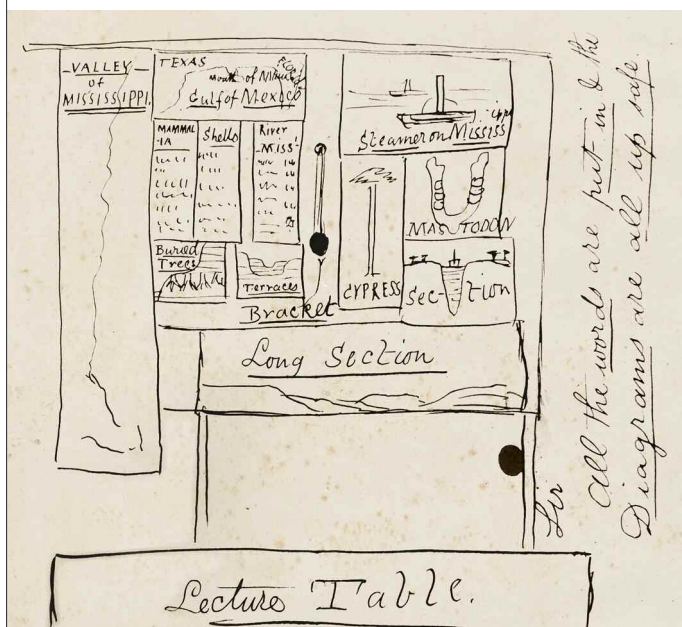 -VALLEY-
of
MISSISSIPPI.
TEXAS
FLORIDA
Mouth of
Gulf of Mexico
MAMMAL
-IA
Shells
River
-MISS-
Buried
Trees
Terraces
Bracket
Steamer on MISSIS
ippi
CYPRESS
MASTODON
Sec-tion
Long Section
Lecture Table.
Sir
All the words are put in & the
Diagrams are all up safe.